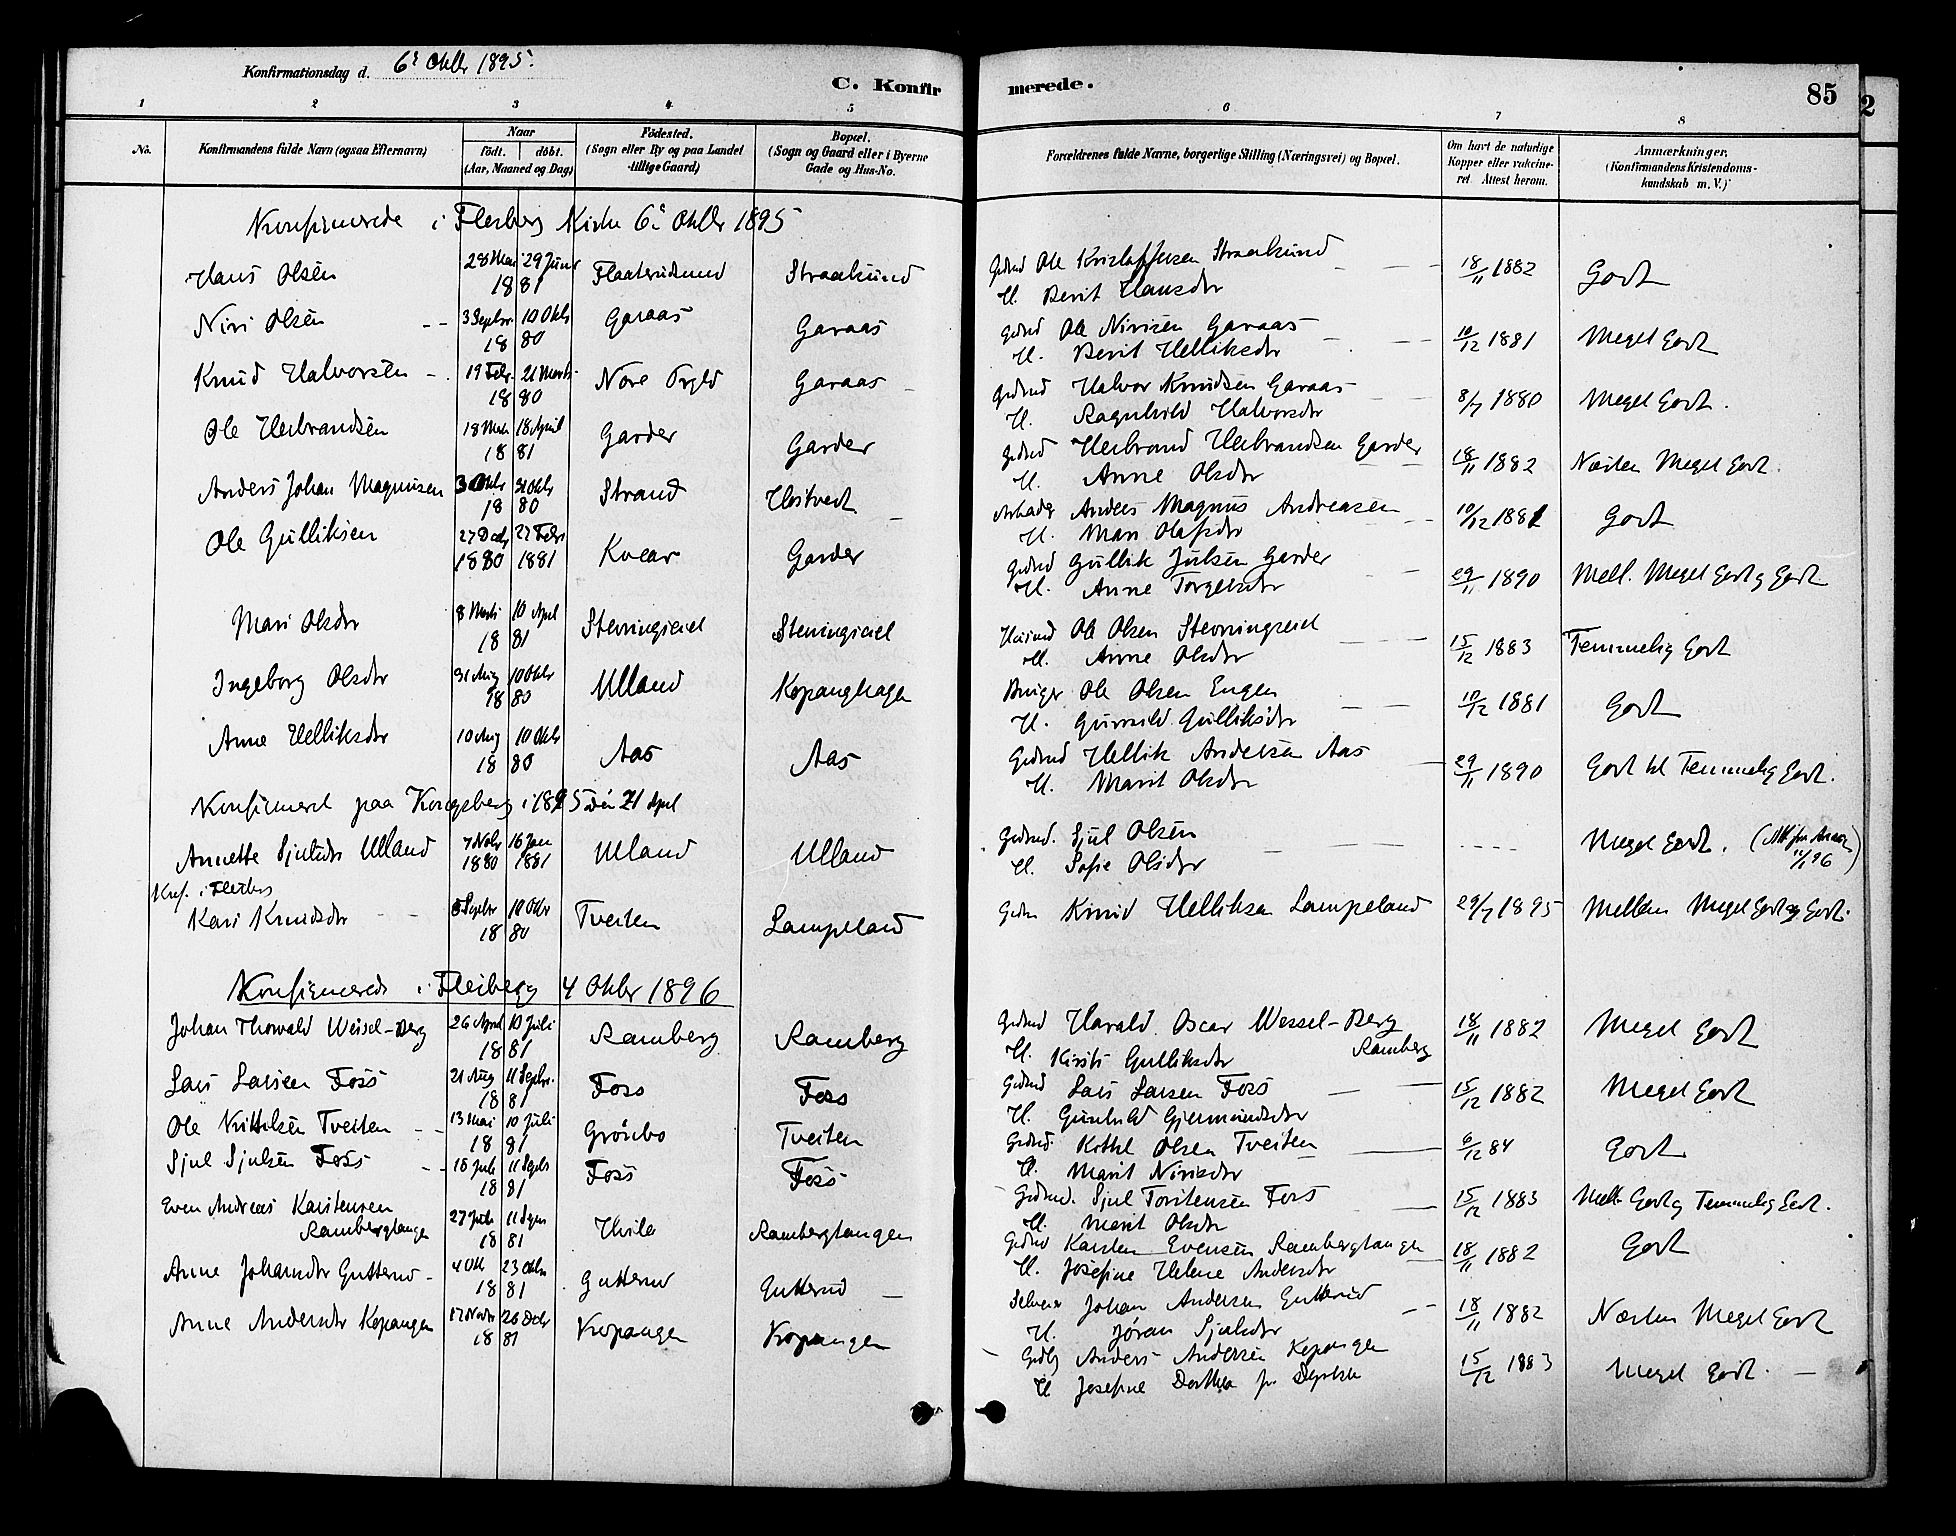 Konfirmationsdag d. 6te Oktbr 1895.
C. Konfir
merede.
85
2
1 2 3 4 5 6 7 8
No.
Konfirmandens fulde Navn (ogsaa Efternavn)
Naar
født. døbt.
(Aar, Maaned og Dag)
Fødested.
(Sogn eller By og paa Landet
tillige Gaard)
Bopæl.
(Sogn og Gaard eller i Byerne
Gade og Hus-No.
Forældrenes fulde Navne, borgerlige Stilling (Næringsvei) og Bopæl.
Om havt de naturlige
Kopper eller vakcine-
ret. Attest herom.
Anmærkninger,
(Konfirmandens Kristendoms-
kundskab m. V.)
Konfirmerede i Flesberg Kirke 6te Oktbr 1895
Hans Olsen 28 Mai 29 Juni 1881 Flaaterudsund Straalsund Gdbrd Ole Kristoffersen Straalsund 18/11 1882 Godt
H. Berit Hansdtr
Niri Olsen 3 Septbr. 10 Oktb 1880 Garaas Garaas Gdbrd Ole Nirisen Garaas 10/12 1881 Meget Godt
H. Berit Helliksdtr
Knud Halvorsen 19 Febr. 21 Marts 1880 Nore Garaas Gdbrd Halvor Knudsen Garaas 8/7 1880 Meget Godt.
H. Ragnhild Halvorsdtr
Ole Herbrandsen 18 Mrts 18 April 1881 Garder Garder Gdbrd Herbrand Herbrandsen Garder 18/11 1882 Næsten Meget Godt.
H. Anne Olsdtr
Anders Johan Magnusen 3 Oktbr 31 Oktbr 1880 Strand Hostvedt Arbeider Anders Magnus Andreasen 10/12 1881 Godt
H. Mari Olafsdtr
Ole Gulliksen 27 Decbr 1880 27 Febr 1881 Kvear Garder Gdbrd Gullik Julsen Garder 29/11 1890 Mell. Meget Godt og Godt
H. Anne Torgersdtr
Mari Olsdtr 8 Marts 10 April 1881 Stevningseiet Stevningseiet Husmd Ole Olsen Stevningseiet 15/12 1883 Temmelig Godt
H. Anne Olsdtr
Ingeborg Olsdtr 31 Aug 10 Oktbr 1880 Ulland Kopanghagen Bruger Ole Olsen Engen 10/12 1881 Godt
H. Gunild Gulliksdtr
Anne Helliksdtr 10 Aug 10 Oktbr 1880 Aas Aas Gdbrd Hellik Andersen Aas 29/11 1890 Godt til Temmelig Godt.
H. Marit Olsdtr
Konfirmeret paa Kongsberg i 1895 den 21 April
Annette Sjulsdtr Ulland 7 Novbr 1880 16 Jan 1881 Ulland Ulland Gdbrd. Sjul Olsen Meget Godt. (Att fra
H. Sofie Olsdtr 11/1 96)
Knf. i Flesberg
Kari Knudsdtr 5 Septbr 10 Oktbr 1880 Tveiten Lampeland Gdbr Knud Helliksen Lampeland 29/7 1895 Mellem Meget Godt og Godt.
Konfirmerede i Flesberg 4 Oktbr 1896
Johan Thorvald Wessel-Berg 26 April 10 Juli 1881 Ramberg Ramberg Gdbrd Harald Oscar Wessel-Berg 18/11 1882 Meget Godt
H. Kirsti Gulliksdtr Ramberg
Lars Larsen Foss 21 Aug 11 Septbr. 1881 Foss Foss Gdbrd Lars Larsen Foss 15/12 1882 Meget Godt
H. Gunhild Gjermundsdtr
Ole Kittilsen Tveiten 13 Mai 10 Juli 1881 Grönbo Tveiten Gdbrd. Kittil Olsen Tveiten 6/12 84 Godt
H. Marit Nirisdtr
Sjul Sjulsen Foss 15 Juli 11 Septb 1881 Foss Foss Gdbrd. Sjul Torstensen Foss 15/12 1883 Mell. Godt og Temmelig Godt.
H. Marit Olsdtr
Even Andreas Karstensen
Rambergtangen 27 Juli 11 Sept 1881 Hvila Rambergtangen Gdbrd Karsten Evensen Rambergtangen 18/11 1882 Godt
H. Josefine Helene Andersdtr
Anne Johansdtr Gutterud 4 Okt 23 Oktbr 1881 Gutterud Gutterud Selveier Johan Andersen Gutterud 18/11 1882 Næsten Meget Godt
H. Jøran Sjulsdtr
Anne Andersdtr Kopangen 17 Novbr 26 Decbr 1881 Kopangen Kopangen Gdbr Anders Andersen Kopangen 15/12 1883 Meget Godt.
H Josefine Dorthea